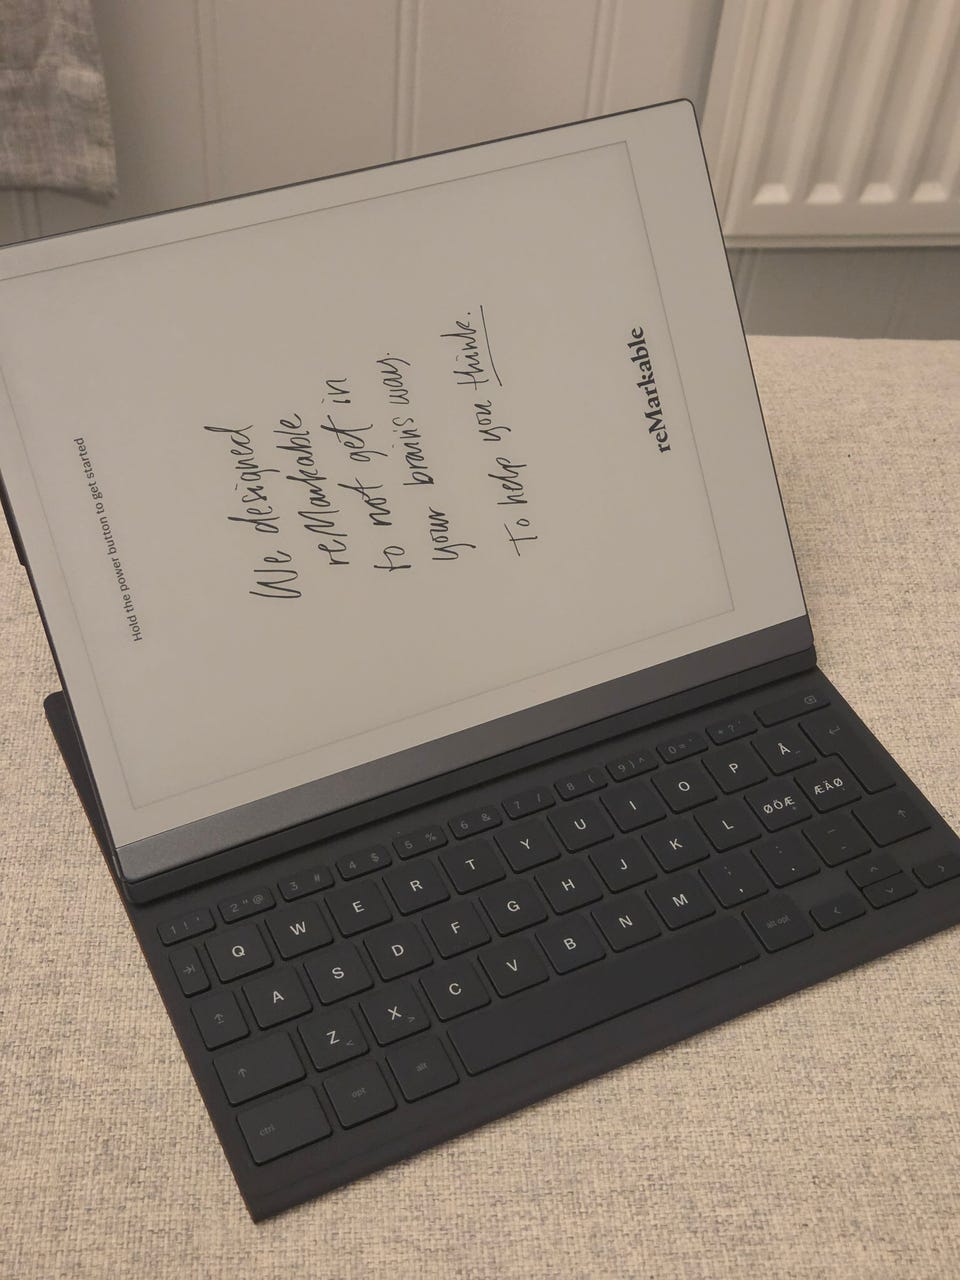 Hold the power button to get started
We designed
reMarkable
to not get in
your brain's way.
To help you think.
reMarkable
1 ! ' 2 " @ 3 # 4 $ 5 % 6 & 7 / 8 ( 9 ) ^ 0 = + ? `
Q W E R T Y U I O P Å
A S D F G H J K L ØÖÆ ÆÄØ
Z < X > C V B N M ; , : . _ -
ctrl opt alt alt opt